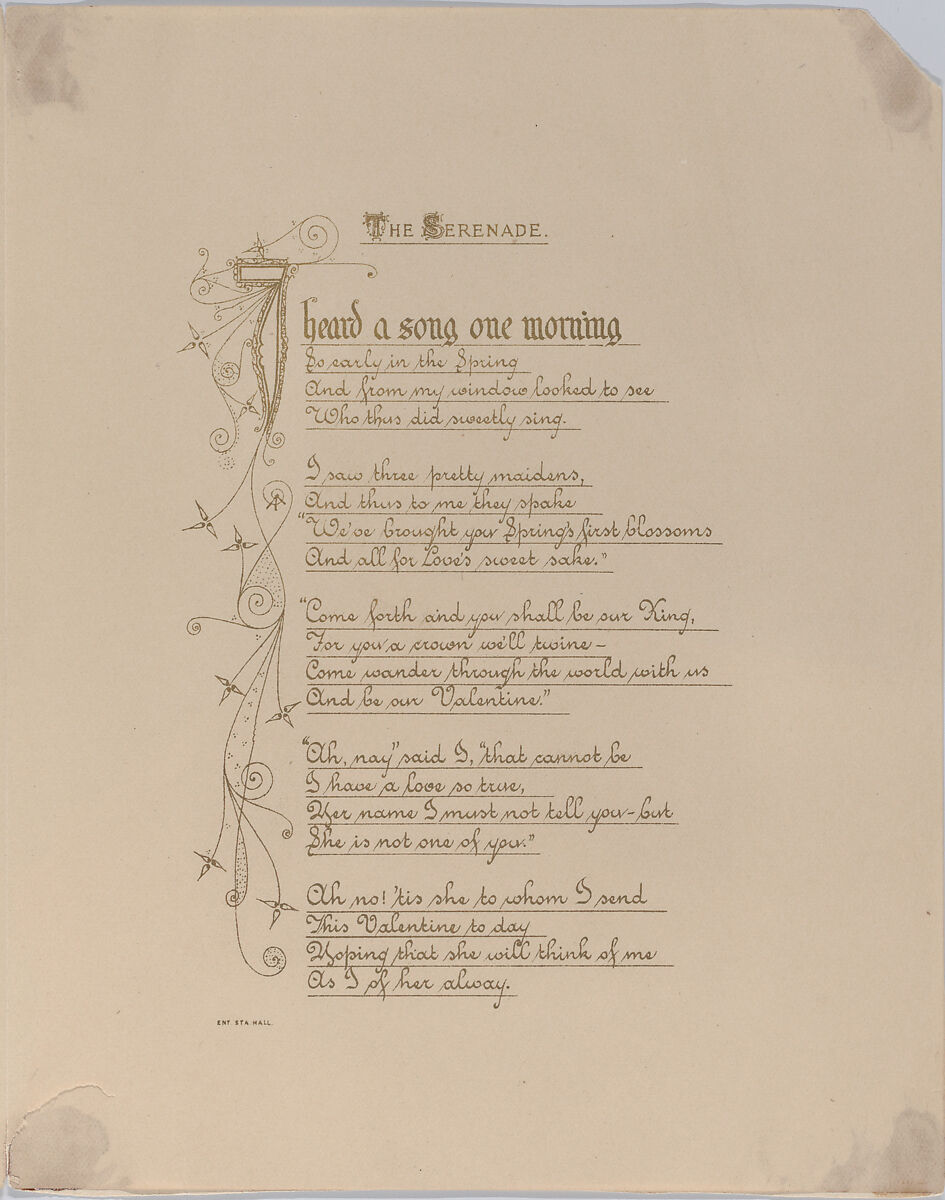 THE SERENADE.
I heard a song one morning
So early in the Spring
And from my window looked to see
Who thus did sweetly sing.
I saw three pretty maidens,
And thus to me they spake
"We've brought you Spring's first blossoms
And all for Love's sweet sake."
"Come forth and you shall be our King,
For you a crown we'll twine –
Come wander through the world with us
And be our Valentine."
"Ah, nay" said I, "that cannot be
I have a love so true,
Her name I must not tell you – but
She is not one of you."
Ah no! 'tis she to whom I send
This Valentine to day
Hoping that she will think of me
As I of her alway.
ENT STA. HALL.